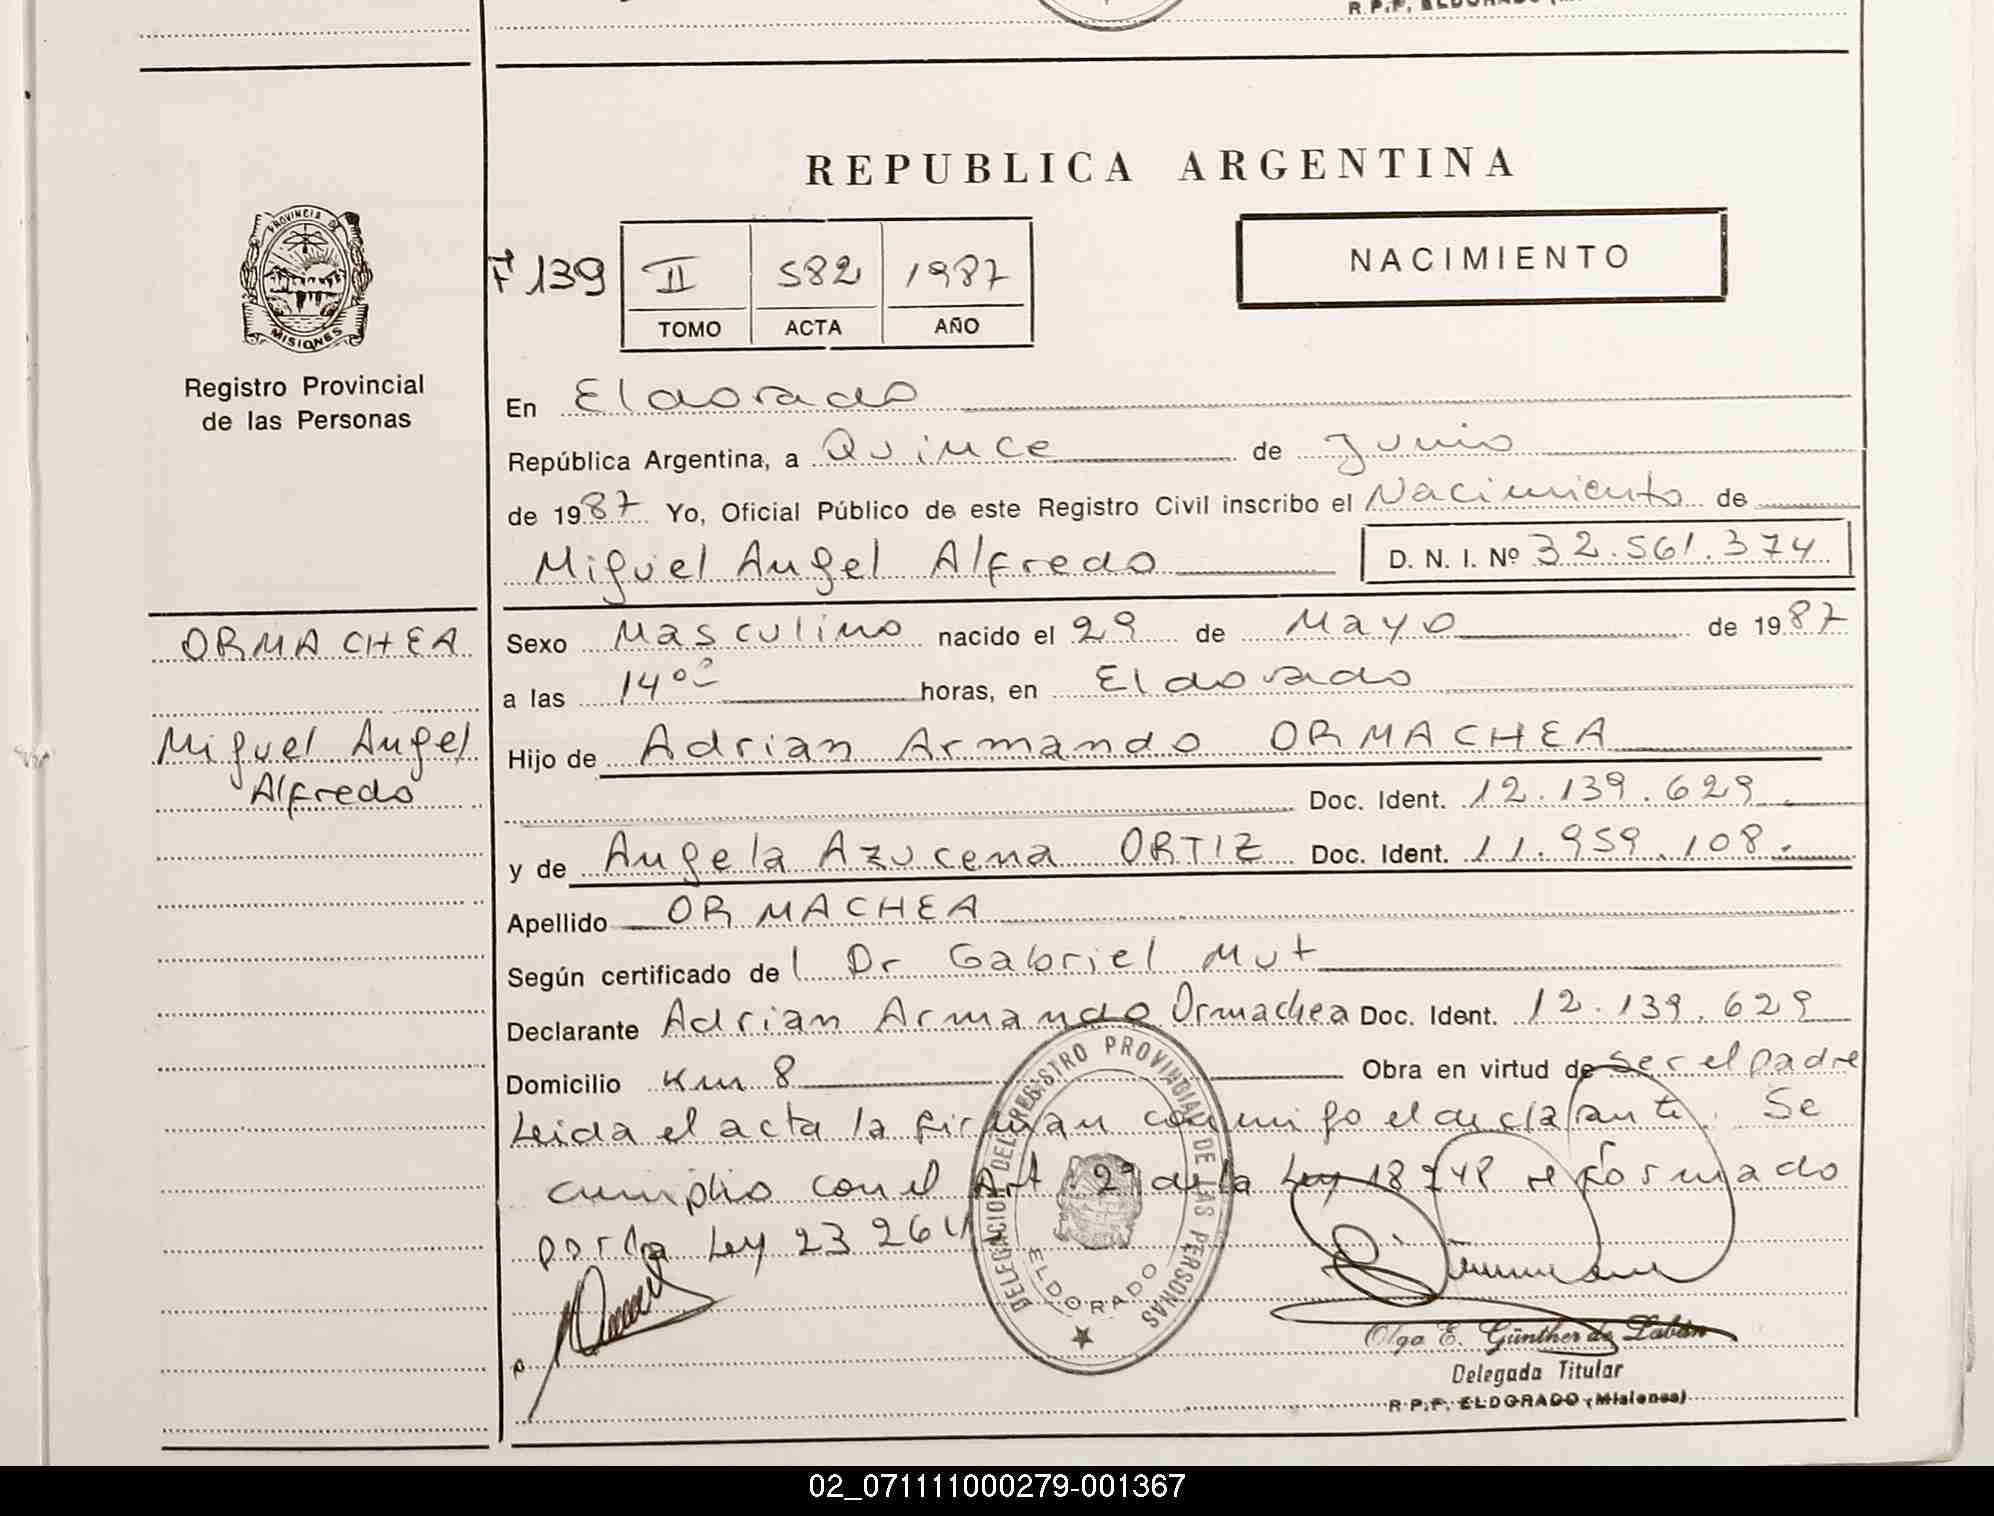 R.P.P. ELDORADO
REPUBLICA ARGENTINA
PROVINCIA DE MISIONES
Fº 139
II 582 1987
TOMO ACTA AÑO
NACIMIENTO
Registro Provincial
de las Personas
En Eldorado
República Argentina, a Quince de Junio
de 1987 Yo, Oficial Público de este Registro Civil inscribo el Nacimiento de
Miguel Angel Alfredo D. N. I. Nº 32.561.374
ORMACHEA
Miguel Angel
Alfredo
Sexo Masculino nacido el 29 de Mayo de 1987
a las 14 00 horas, en Eldorado
Hijo de Adrian Armando ORMACHEA
Doc. Ident. 12.139.629
y de Angela Azucena ORTIZ Doc. Ident. 11.959.108.
Apellido ORMACHEA
Según certificado del Dr Gabriel Mut
Declarante Adrian Armando Ormachea Doc. Ident. 12.139.629
Domicilio Km 8 Obra en virtud de ser el padre
Leida el acta la firman conmigo el declarante. Se
cumplio con el Art 2º de la Ley 18248 reformado
por la Ley 23264
DELEGACION DEL REGISTRO PROVINCIAL DE LAS PERSONAS
ELDORADO
Olga E. Günther de Labán
Delegada Titular
R.P.P. ELDORADO (Misiones)
02_071111000279-001367